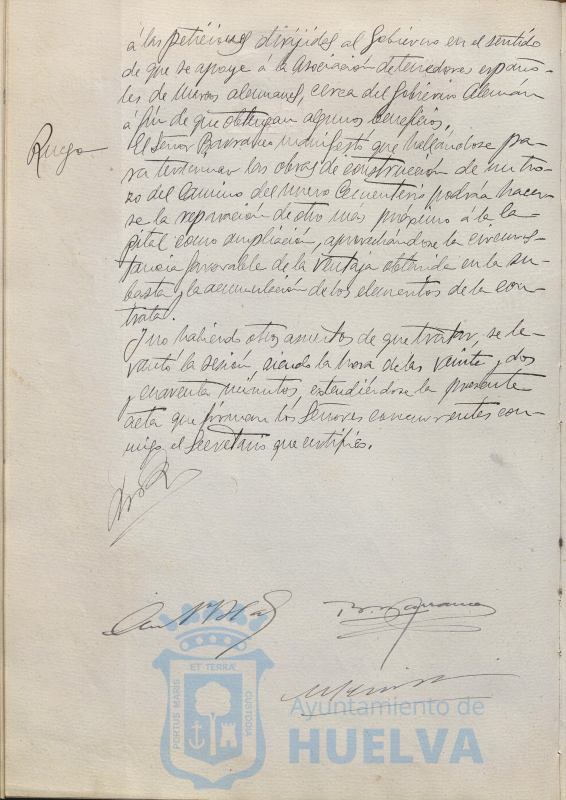 á las peticiones dirigidas al Gobierno en el sentido
de que se apoye á la Asociación de tenedores españo-
les de marcos alemanes, cerca del Gobierno Alemán
á fin de que obtengan algunos beneficios.
Ruego
El Señor manifestó que hallándose pa-
ra terminar las obras de construcción de un tro-
zo del camino del nuevo Cementerio podría hacer-
se la reparación de otro más próximo á la Ca-
pital como ampliación, aprovechándose la circuns-
tancia favorable de la ventaja obtenida en la su-
basta y la acumulación de los elementos de la con-
trata.
Y no habiendo otros asuntos de que tratar, se le-
vantó la sesión, siendo la hora de las veinte y dos
y cuarenta minutos, extendiéndose la presente
acta que firman los Señores concurrentes con-
migo el Secretario que certifico.
PORTUS MARIS
ET TERRÆ
CUSTODIA
Ayuntamiento de
HUELVA